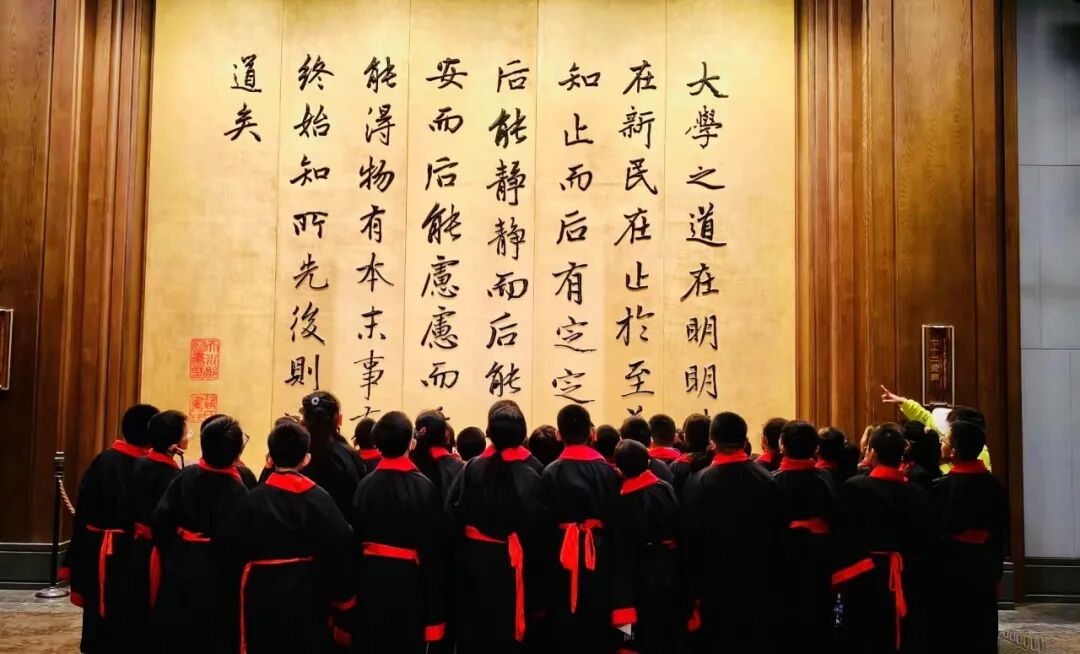 大學之道在明明
在新民在止於至
知止而后有定定
后能静静而后能
安而后能慮慮而
能得物有本末事
終始知所先後則
道矣